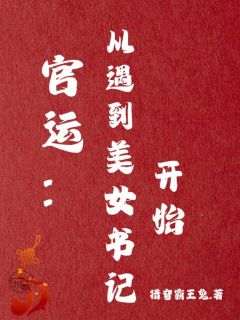 官运：
从遇到美女书记
开始
霸王兔.著